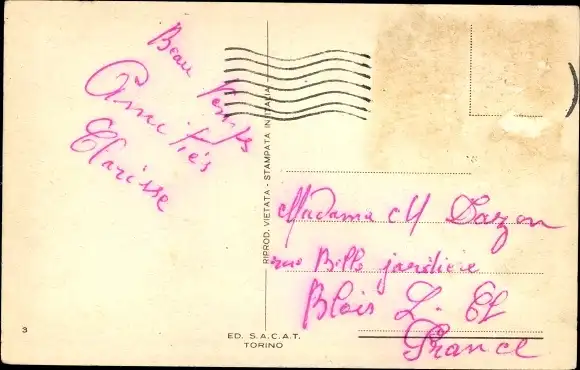 Beau Temps
Amitiés
Clarisse
RIPROD. VIETATA - STAMPATA IN ITALIA
Madame M Dazon
rue Belle jardiere
Blois L. Cl
France
3
ED. S.A.C.A.T.
TORINO